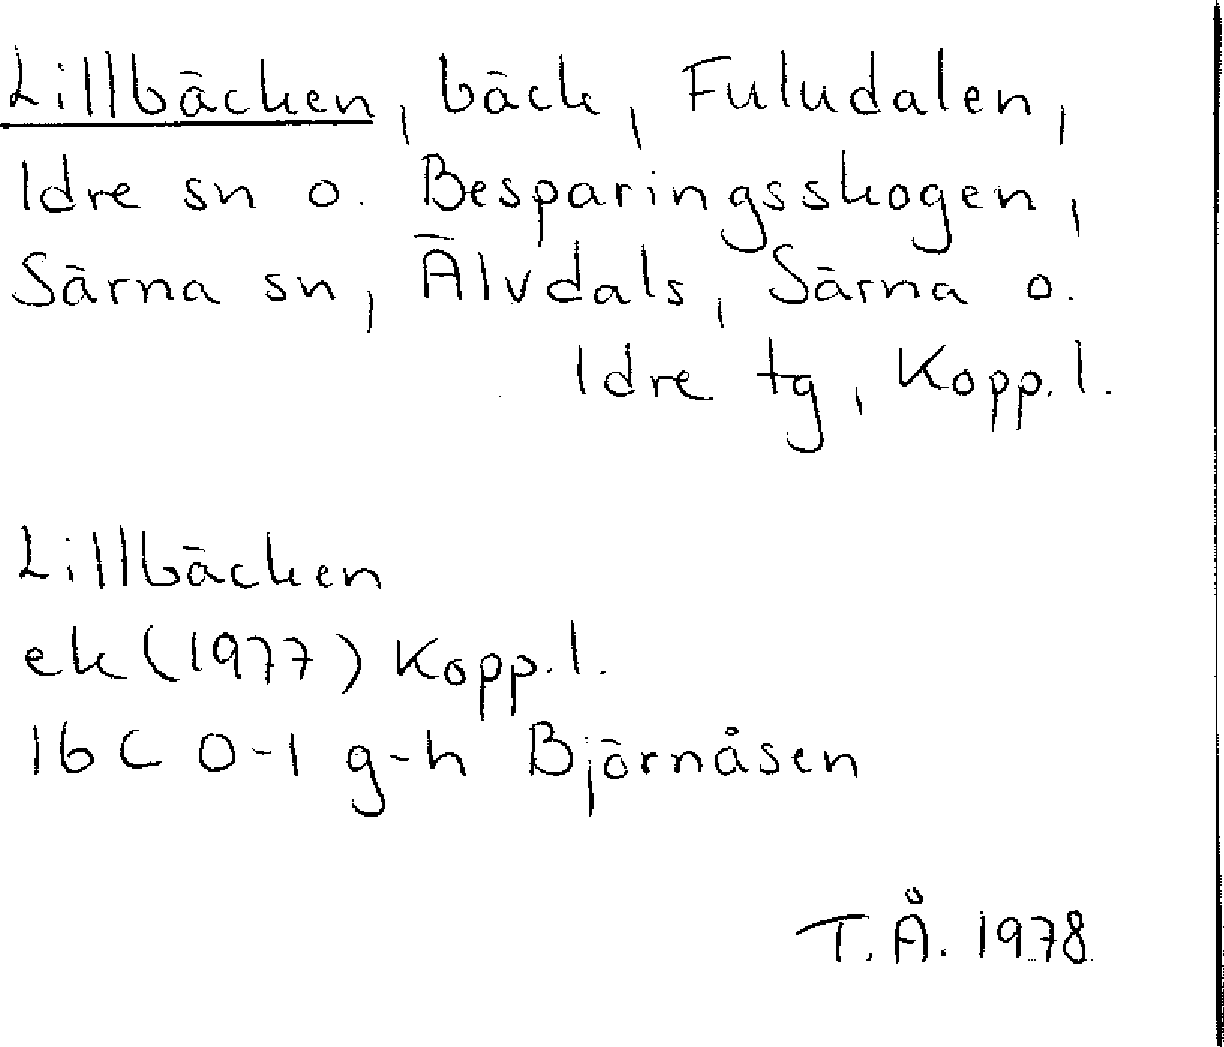 Lillbäcken, bäck, Fuludalen,
Idre sn o. Besparingsskogen,
Särna sn, Älvdals, Särna o.
Idre tg, Kopp. l.
Lillbäcken
ek (1977) Kopp. l.
16 C 0-1 g-h Björnåsen
T.Å. 1978